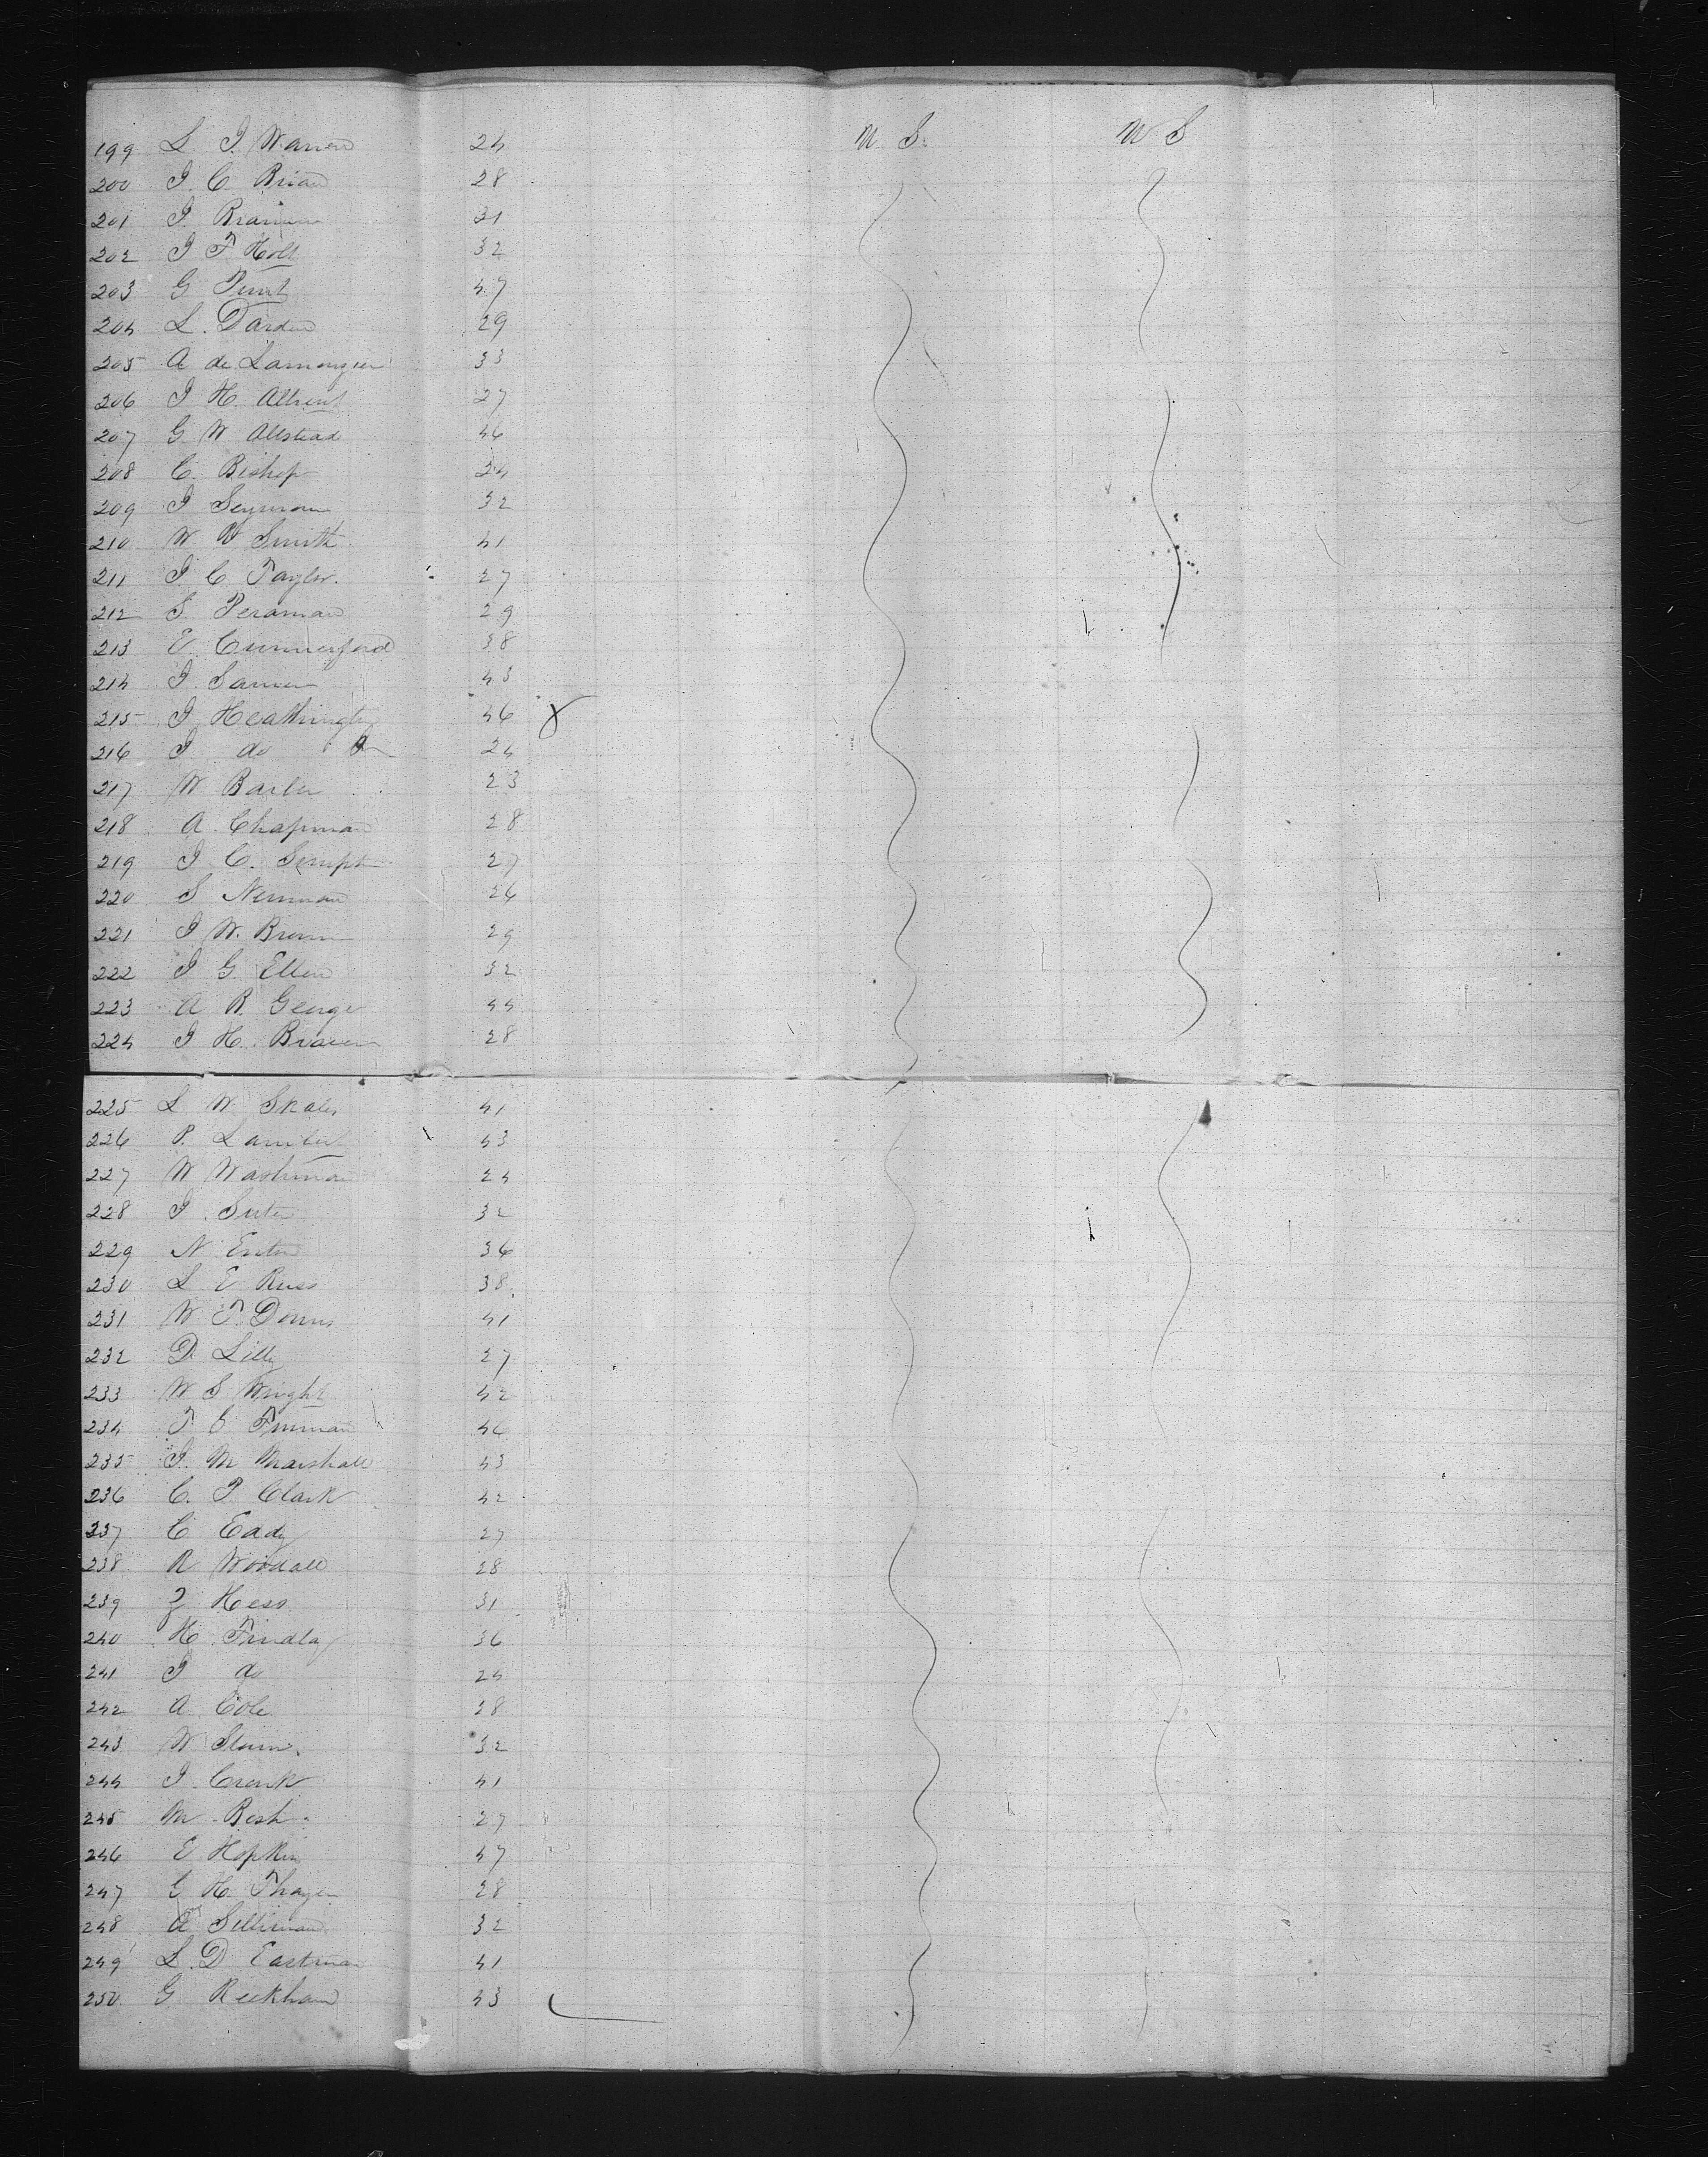 199 L J Warren 24 U. S. U S
200 J. C Brian 28
201 J. 31
202 J F Holt 32
203 G 47
204 L. Darden 29
205 A de 33
206 J H. 27
207 G W Allstead 46
208 C. Bishop 24
209 J Seymour 32
210 W W Smith 41
211 J. C Taylor. 27
212 S. Peraman 29
213 E. Cunnerford 38
214 J. 43
215 J Heathington 46
216 J do Jr 24
217 W Barber 23
218 A. Chapman 28
219 J C. 27
220 S Newman 26
221 J W. Brown 29
222 J G. Ellen 32
223 A B. George 44
224 J H. 28
225 L W. Skales 41
226 P. Lambert 43
227 W 24
228 J. Suter 32
229 N 36
230 L E Russ 38
231 W T. Downs 41
232 D Lilly 27
233 W S Wright 42
234 T. C 46
235 J. M Marshall 43
236 C. P Clark 42
237 C Eady 27
238 R Woodall 28
239 Z Hess 31
240 H Findlay 36
241 J do 24
242 A Cole 28
243 W 32
244 J. Cronk 41
245 M 27
246 E Hopkins 47
247 E H. Thayer 28
248 A Silliman 32
249 L. D Eastman 41
250 G Reckham 43